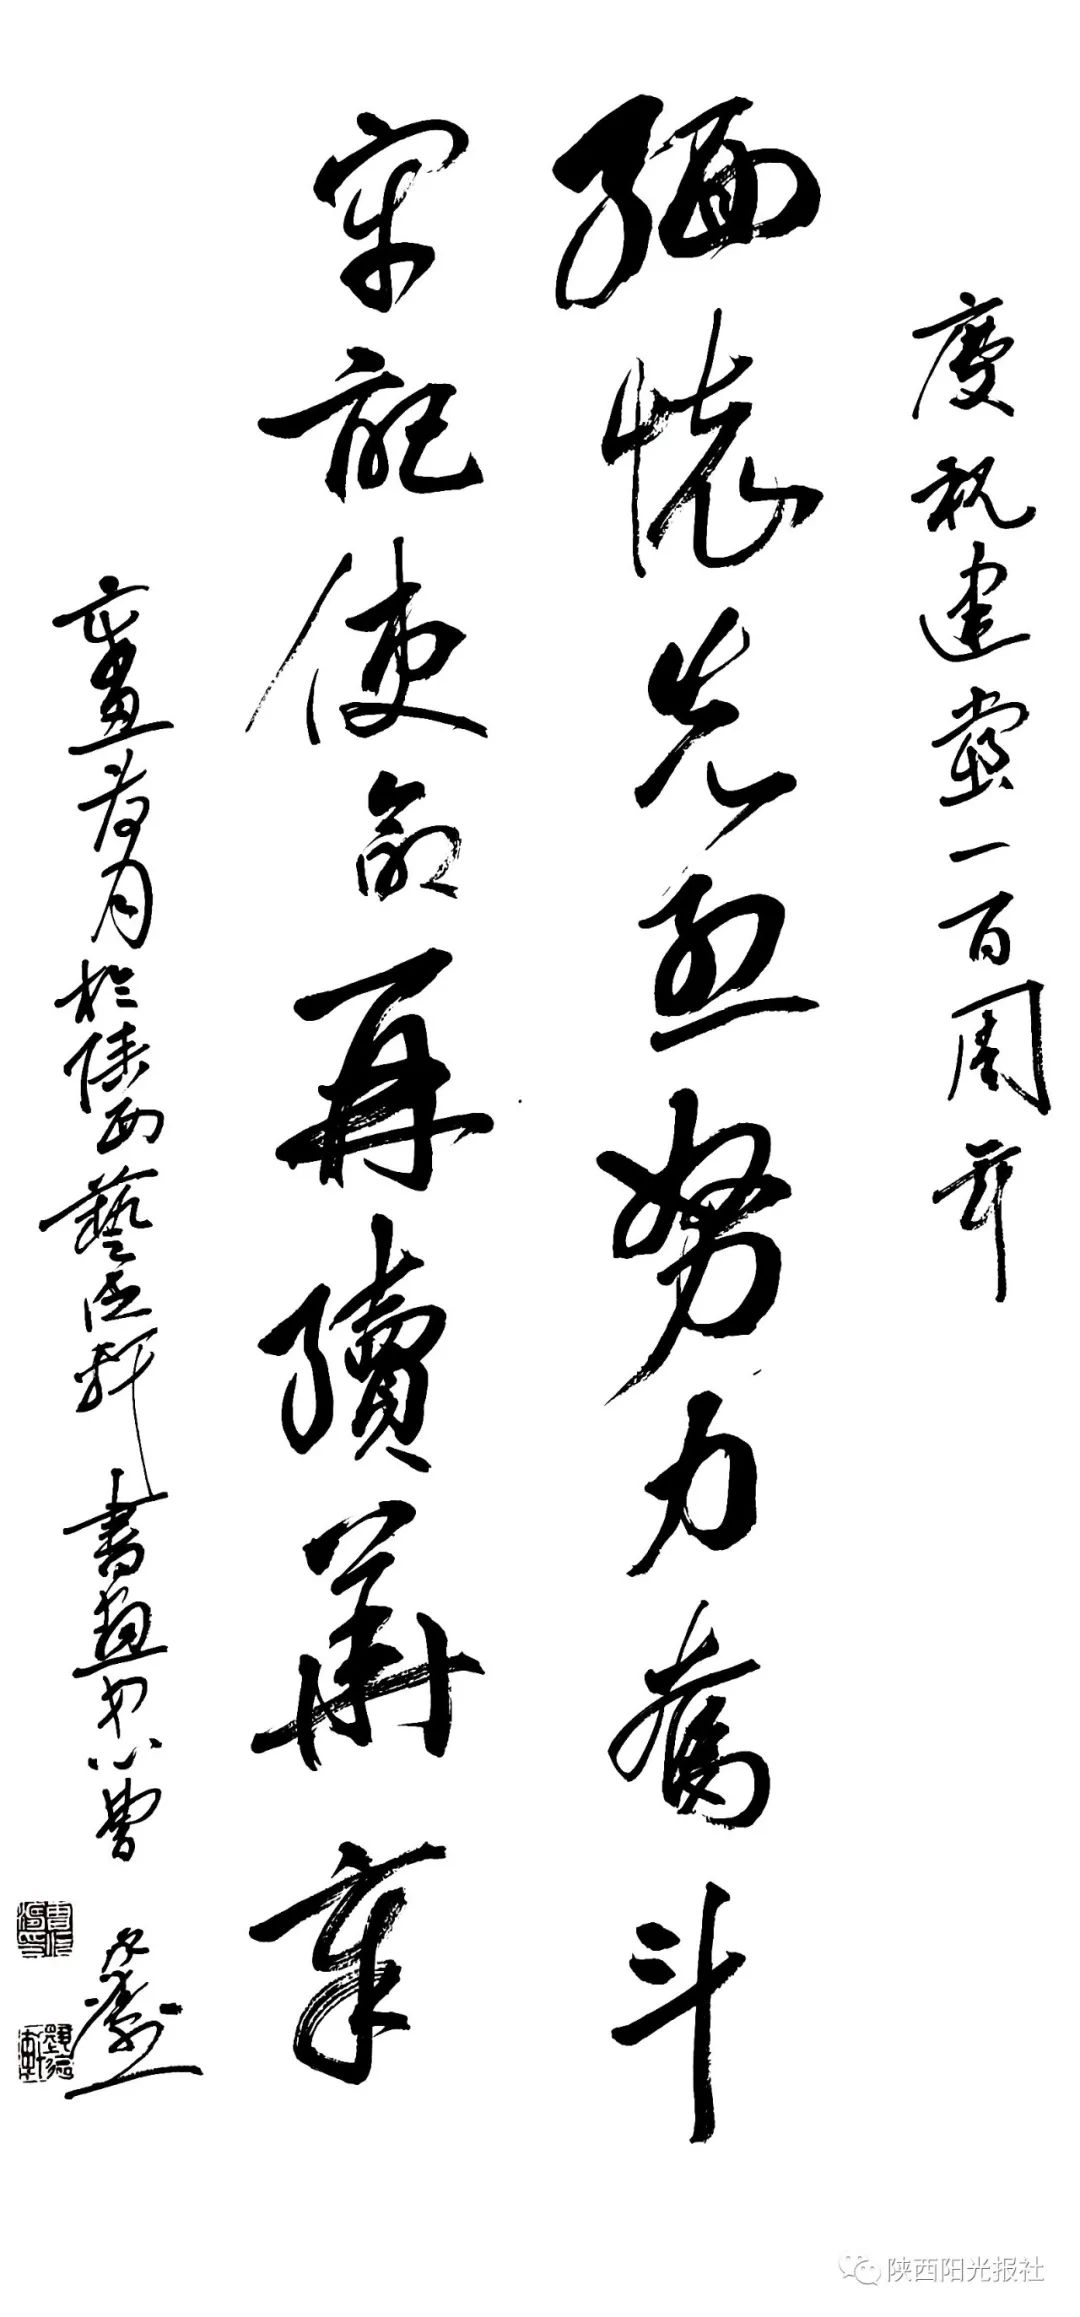 慶祝建黨一百周年
緬懷先烈努力奮斗
牢記使命再續華章
辛丑春月於陝西藝軒書畫中心曹
陕西阳光报社